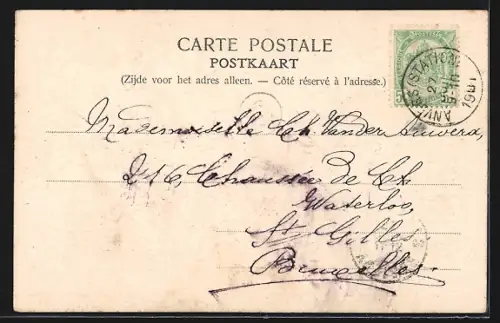 CARTE POSTALE
POSTKAART
(Zijde voor het adres alleen. — Côté réservé à l'adresse.)
ANVERS (STATION)
1901
5
Mademoiselle Ch. Van der
216, Chaussée de
Waterloo,
St. Gilles
Bruxelles.